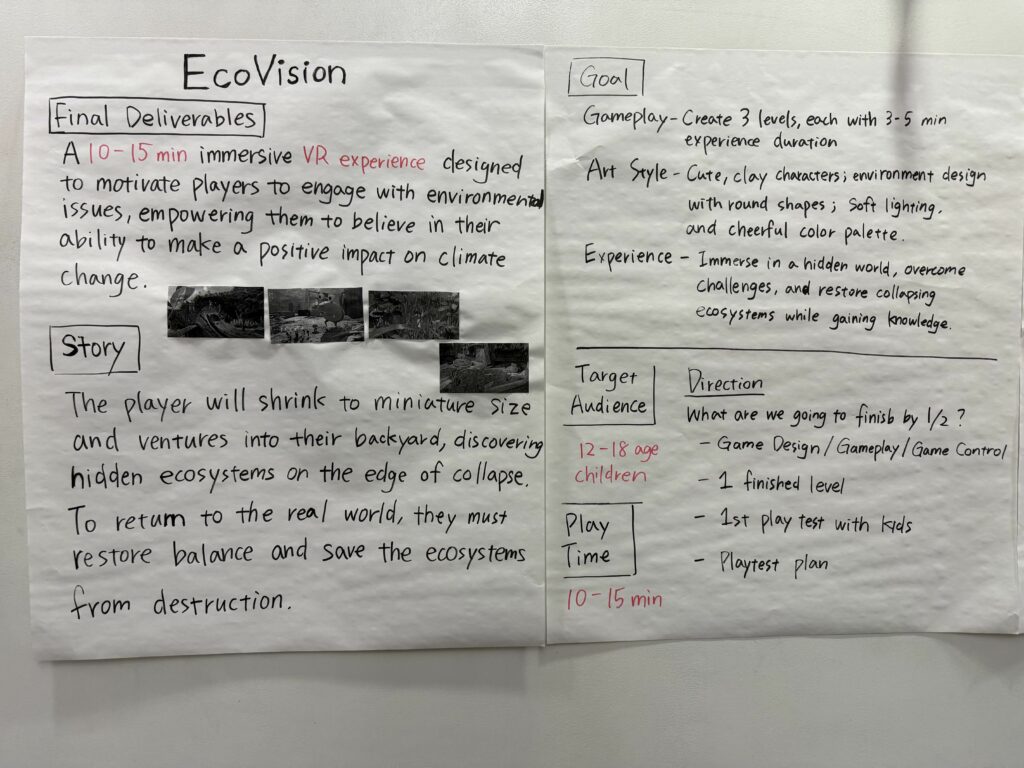 EcoVision
Final Deliverables
A 10-15 min immersive VR experience designed
to motivate players to engage with environmental
issues, empowering them to believe in their
ability to make a positive impact on climate
change.
Story
The player will shrink to miniature size
and ventures into their backyard, discovering
hidden ecosystems on the edge of collapse.
To return to the real world, they must
restore balance and save the ecosystems
from destruction.
Goal
Gameplay - Create 3 levels, each with 3-5 min
experience duration
Art Style - Cute, clay characters; environment design
with round shapes; Soft lighting.
and cheerful color palette.
Experience - Immerse in a hidden world, overcome
challenges, and restore collapsing
ecosystems while gaining knowledge.
Target
Audience
12-18 age
children
Play
Time
10-15 min
Direction
What are we going to finish by 1/2 ?
- Game Design / Gameplay / Game Control
- 1 finished level
- 1st play test with kids
- Playtest plan